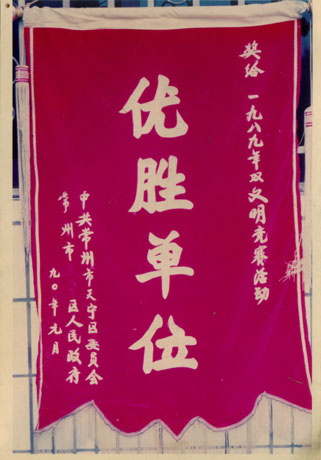 奖给 一九八九年双文明竞赛活动
优胜单位
中共常州市天宁区委员会
常州市 区人民政府
九〇年元月